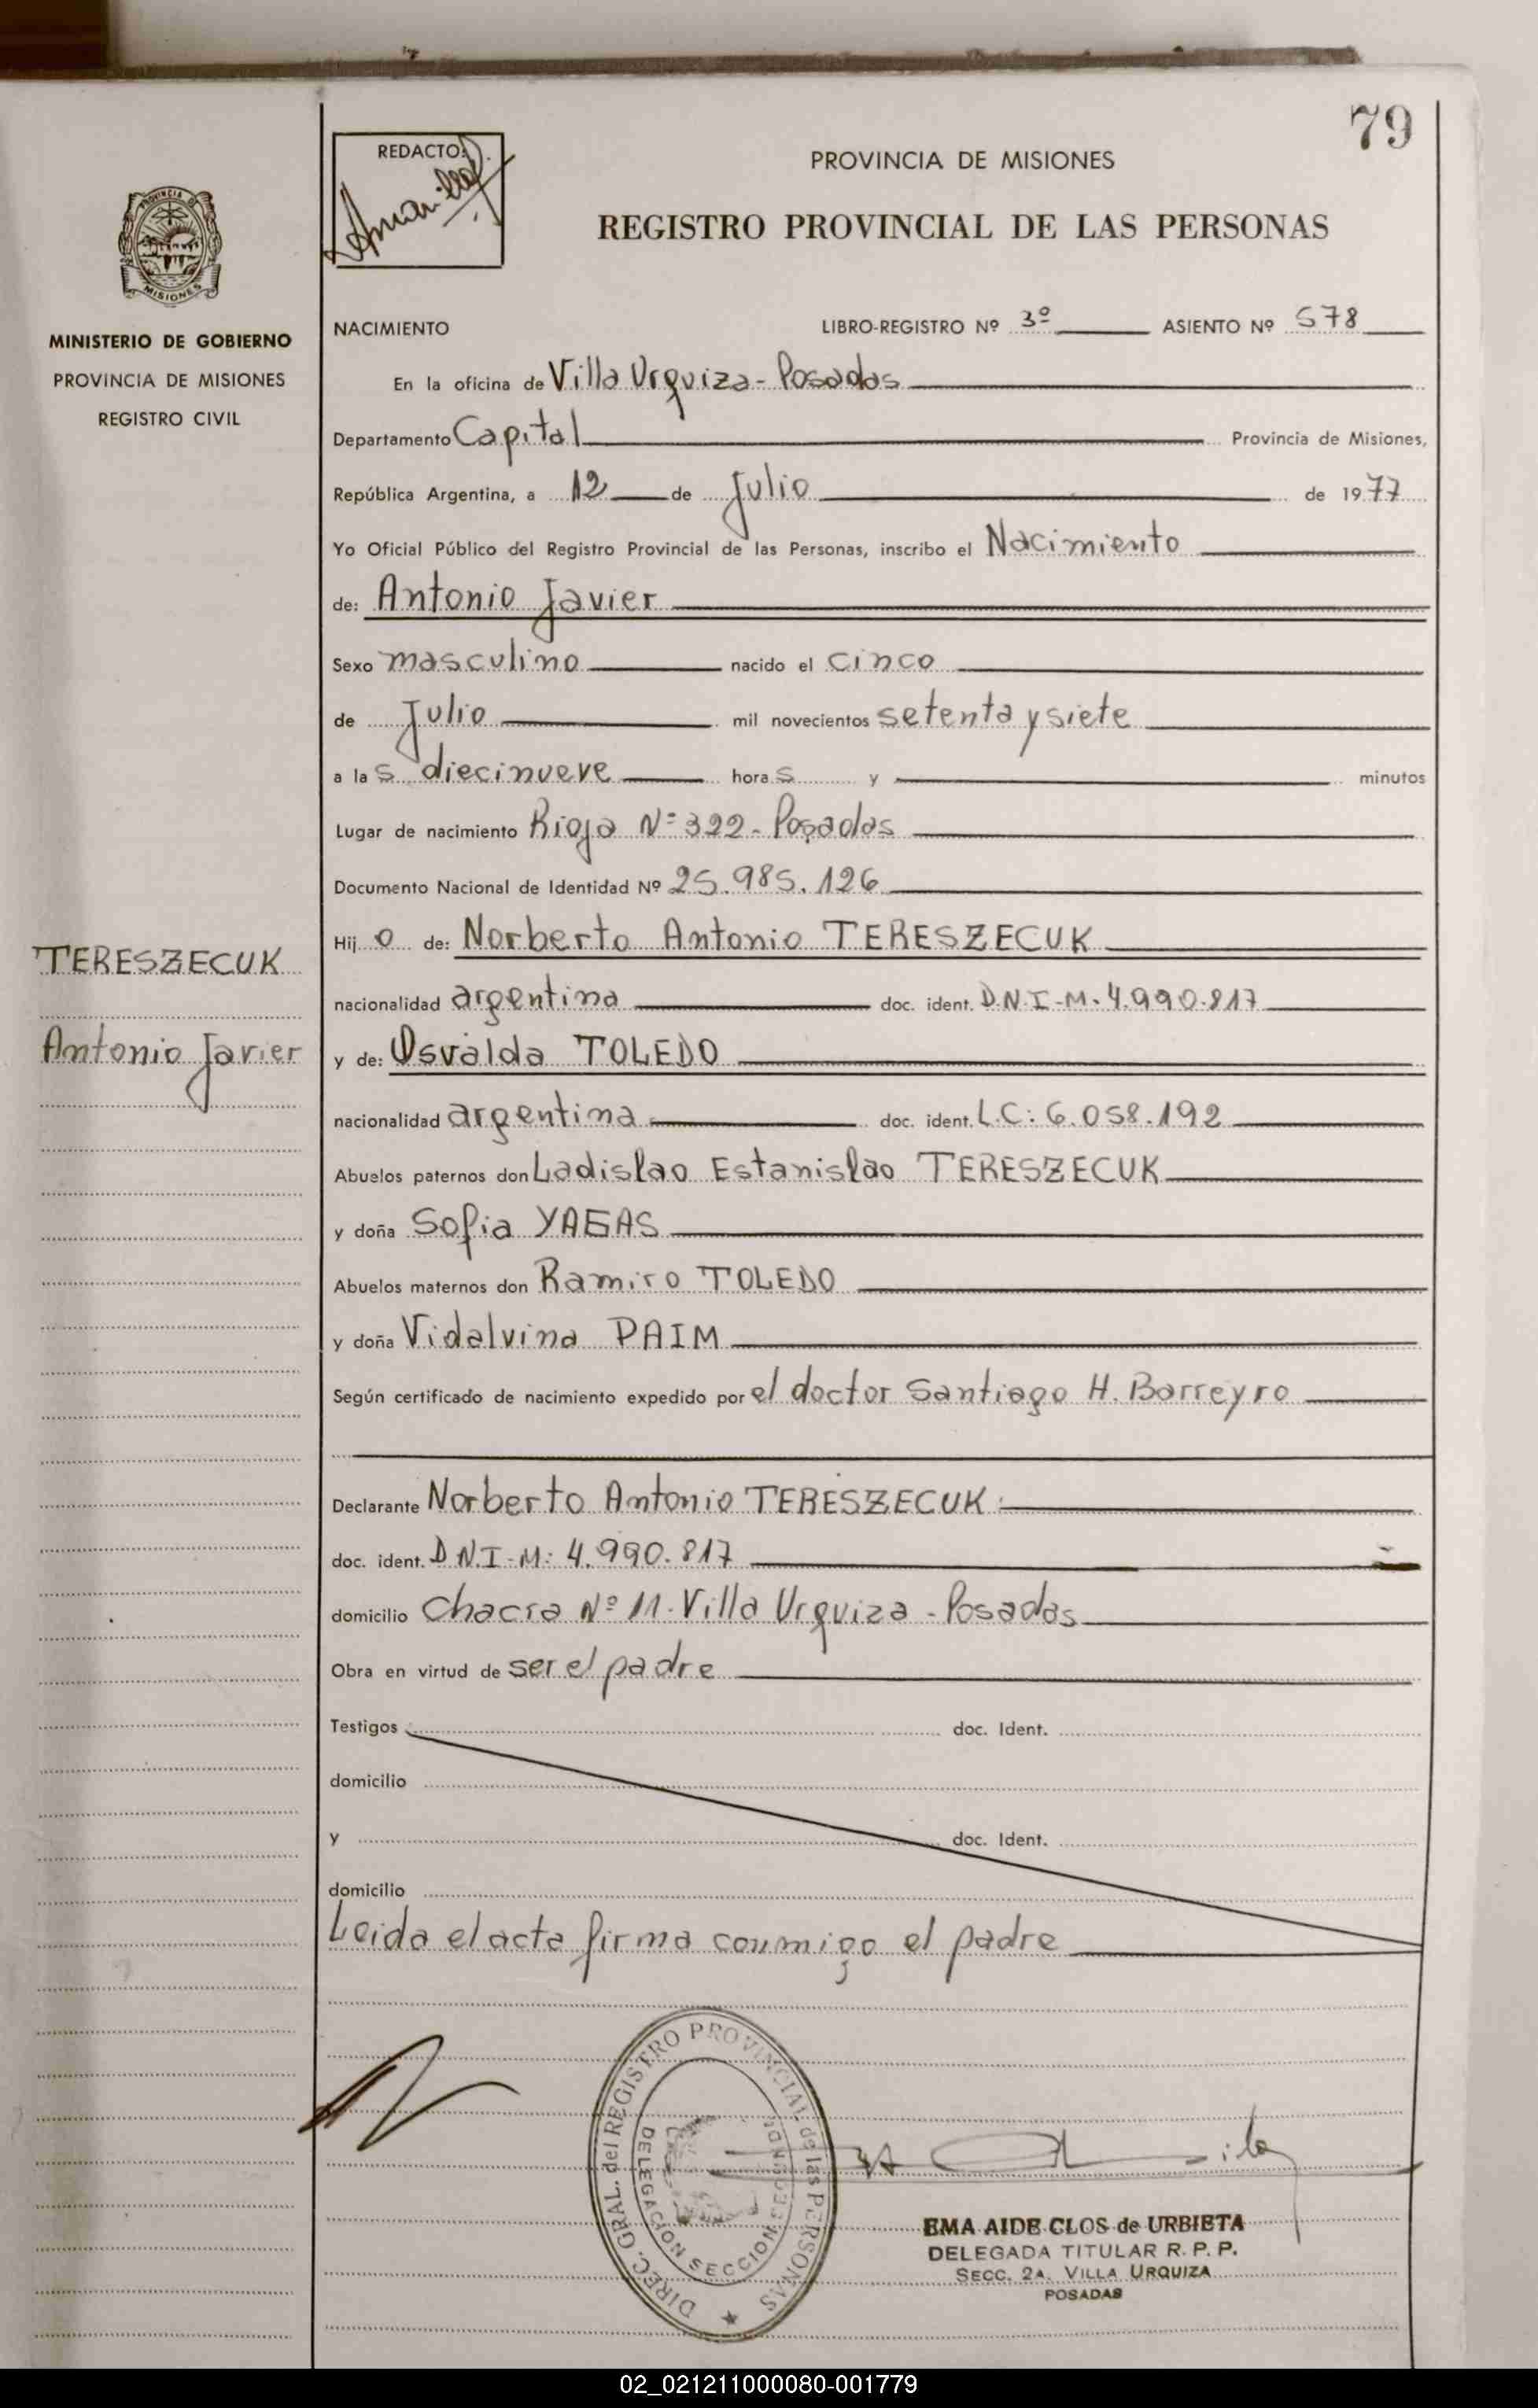 79
REDACTO:
PROVINCIA DE MISIONES
REGISTRO PROVINCIAL DE LAS PERSONAS
PROVINCIA DE
MISIONES
MINISTERIO DE GOBIERNO
PROVINCIA DE MISIONES
REGISTRO CIVIL
NACIMIENTO LIBRO-REGISTRO Nº 3º ASIENTO Nº 578
En la oficina de Villa Urquiza - Posadas
Departamento Capital Provincia de Misiones,
República Argentina, a 12 de Julio de 1977
Yo Oficial Público del Registro Provincial de las Personas, inscribo el Nacimiento
de: Antonio Javier
Sexo masculino nacido el cinco
de Julio mil novecientos setenta y siete
a las diecinueve horas y minutos
Lugar de nacimiento Rioja Nº 322 - Posadas
Documento Nacional de Identidad Nº 25.985.126
Hijo de: Norberto Antonio TERESZECUK
TERESZECUK
nacionalidad argentina doc. ident. D.N.I-M. 4.990.817
Antonio Javier
y de: Osvalda TOLEDO
nacionalidad argentina doc. ident. L.C: 6.058.192
Abuelos paternos don Ladislao Estanislao TERESZECUK
y doña Sofia YAGAS
Abuelos maternos don Ramiro TOLEDO
y doña Vidalvina PAIM
Según certificado de nacimiento expedido por el doctor Santiago H. Barreyro
Declarante Norberto Antonio TERESZECUK
doc. ident. D.N.I-M: 4.990.817
domicilio Chacra Nº 11. Villa Urquiza - Posadas
Obra en virtud de ser el padre
Testigos doc. Ident.
domicilio
y doc. Ident.
domicilio
Leida el acta firma conmigo el padre
DIREC. GRAL. del REGISTRO PROVINCIAL de las PERSONAS
DELEGACION SECCION SEGUNDA
EMA AIDE CLOS de URBIETA
DELEGADA TITULAR R. P. P.
SECC. 2A. VILLA URQUIZA
POSADAS
02_021211000080-001779